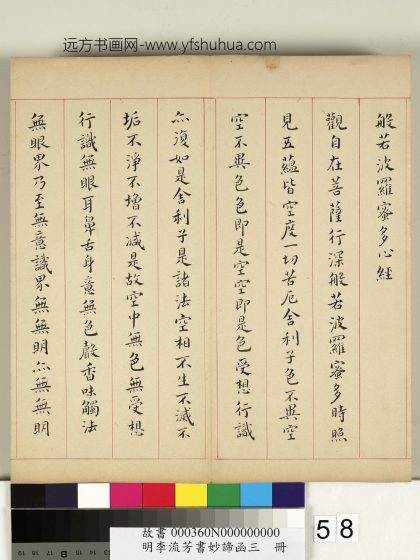 远方书画网-www.yfshuhua.com
般若波羅蜜多心經
觀自在菩薩行深般若波羅蜜多時照
見五蘊皆空度一切苦厄舍利子色不異空
空不異色色即是空空即是色受想行識
亦復如是舍利子是諸法空相不生不滅不
垢不淨不增不減是故空中無色無受想
行識無眼耳鼻舌身意無色聲香味觸法
無眼界乃至無意識界無無明亦無無明
故書 000360N000000000
明李流芳書妙諦函三 冊
58